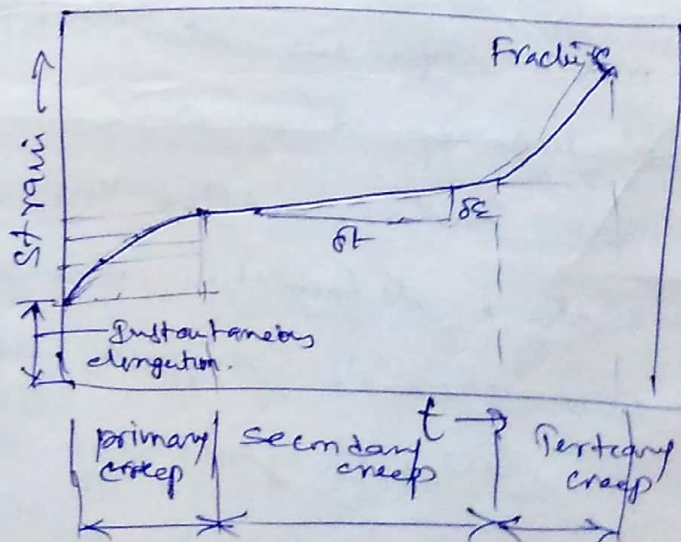 Fracture
Strain →
δt
δε
Instantaneous
elongation.
t →
primary
creep
secondary
creep
Tertiary
creep